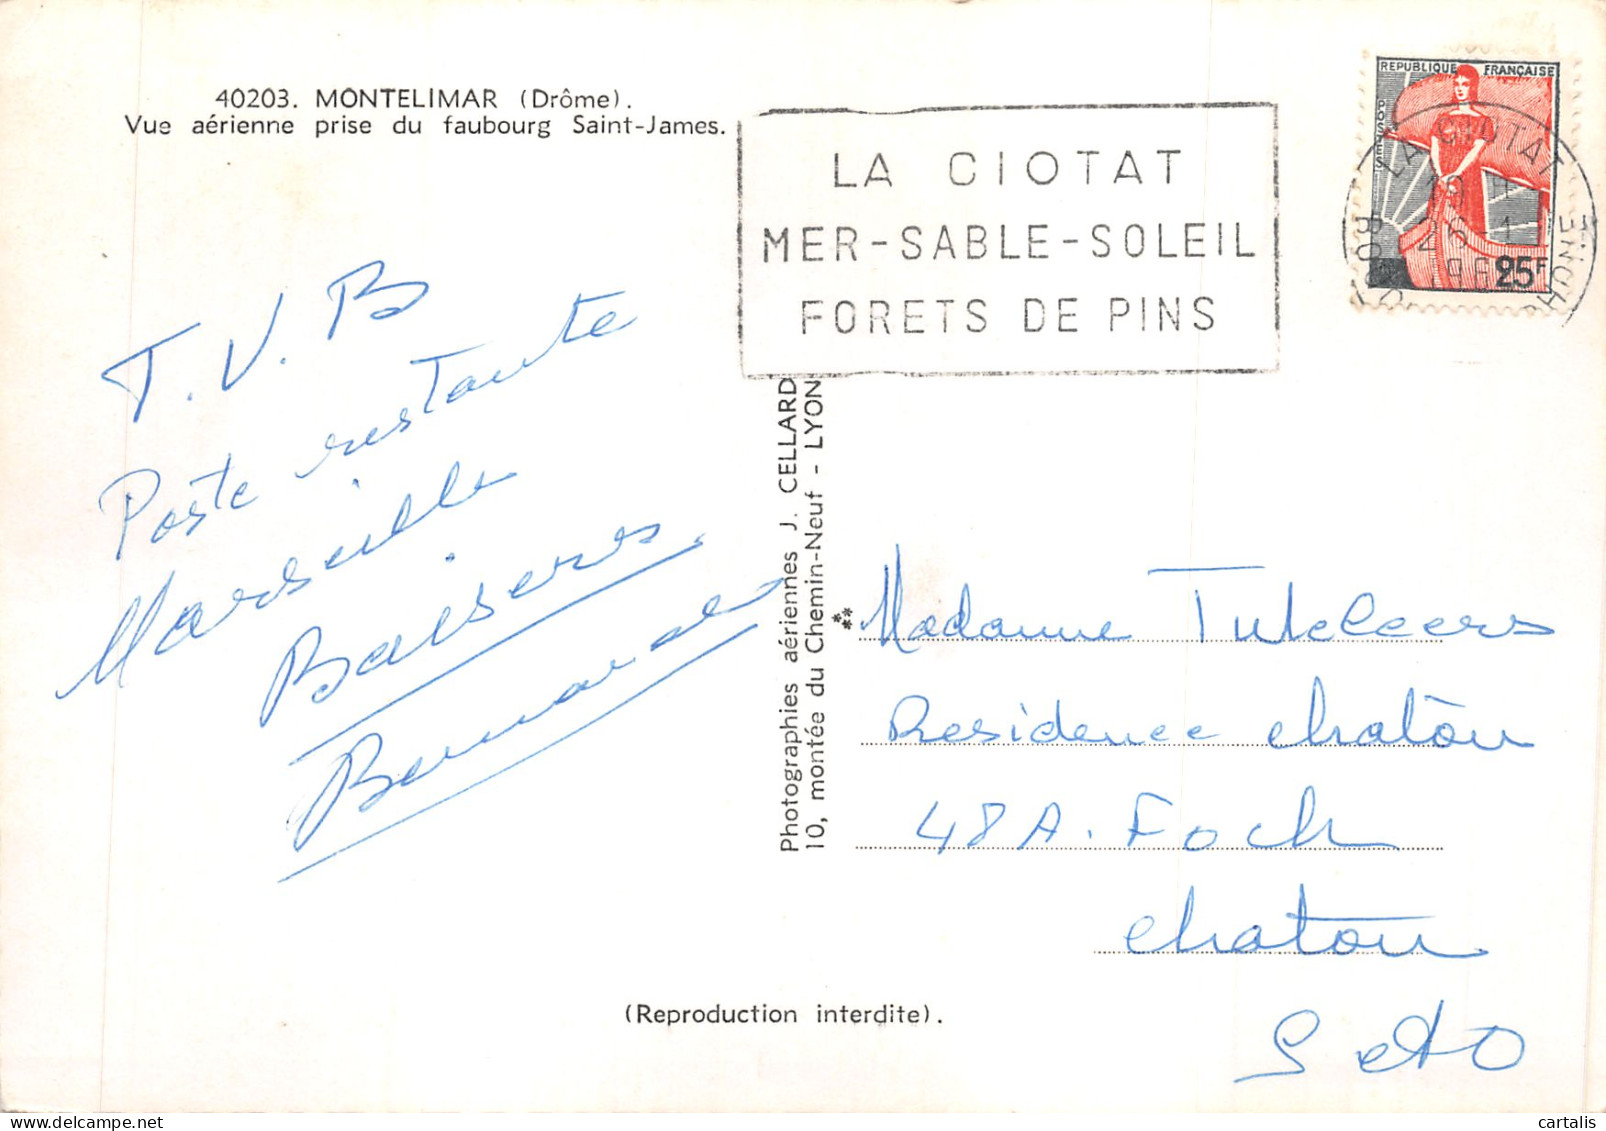 40203. MONTELIMAR (Drôme).
Vue aérienne prise du faubourg Saint-James.
LA CIOTAT
MER-SABLE-SOLEIL
FORETS DE PINS
REPUBLIQUE FRANÇAISE
POSTES
25F
LA CIOTAT
26-1
RHONE
T.V.B
Poste restante
Marseille
Baisers.
Bernard
Photographies aériennes J. CELLARD
10, montée du Chemin-Neuf - LYON
Madame
Residence chatou
48 A. Foch
chatou
S et O
(Reproduction interdite).
cartalis